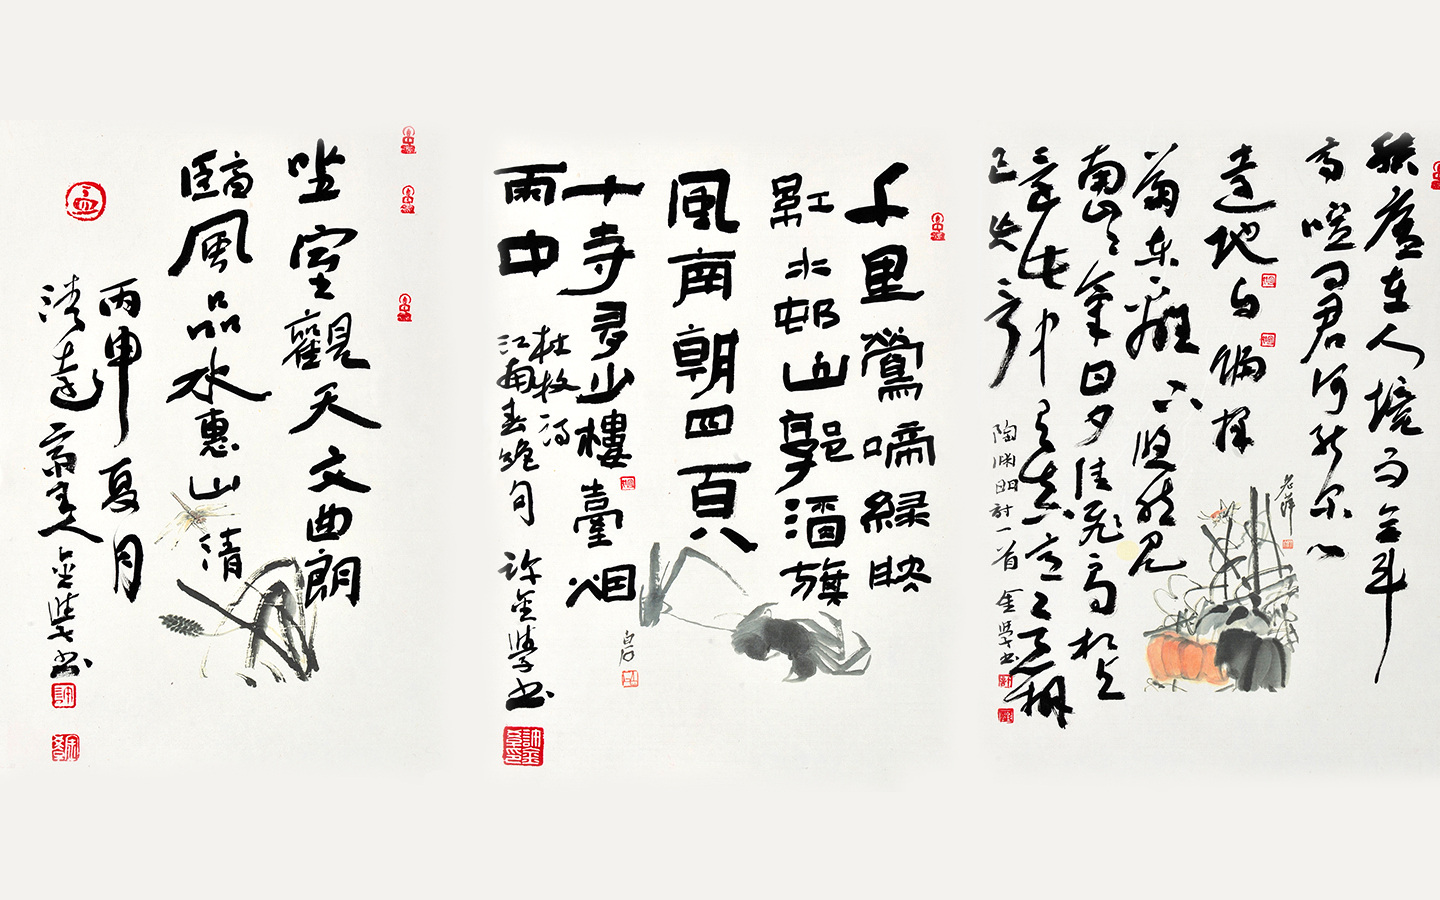 結廬在人境而无車
馬喧問君何能尔心
遠地自偏採
菊東籬下悠然見
南山山氣日夕佳飛鳥相与
還此中有真意
已忘言
陶淵明詩一首 金學书
老萍
千里鶯啼綠映
紅水邨山郭酒旗
風南朝四百八
十寺多少樓臺烟
雨中
杜牧詩
江南春絶句 許金學书
白石
坐室觀天文曲朗
臨風品水惠山清
丙申夏月
清遠齋主人金學书